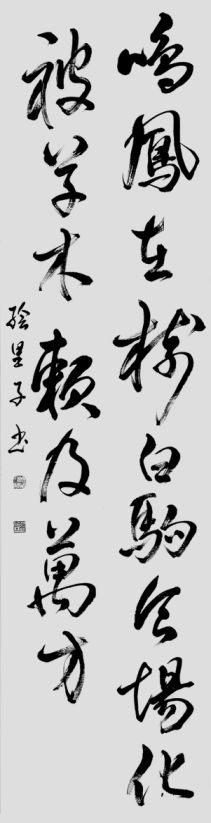 鳴鳳在樹白駒食場化
被草木頼及萬方
絵里子書